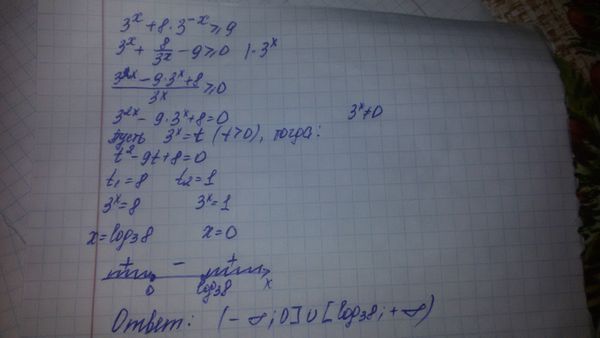 3^x + 8 · 3^{-x} ⩾ 9
3^x + 8/3^x − 9 ⩾ 0 | · 3^x
(3^{2x} − 9 · 3^x + 8)/3^x ⩾ 0
3^{2x} − 9 · 3^x + 8 = 0 3^x ≠ 0
пусть 3^x = t (t > 0), тогда:
t^2 − 9t + 8 = 0
t_1 = 8 t_2 = 1
3^x = 8 3^x = 1
x = log_3 8 x = 0
+ − +
0 log_3 8 x
Ответ: (−∞; 0] ∪ [log_3 8; +∞)